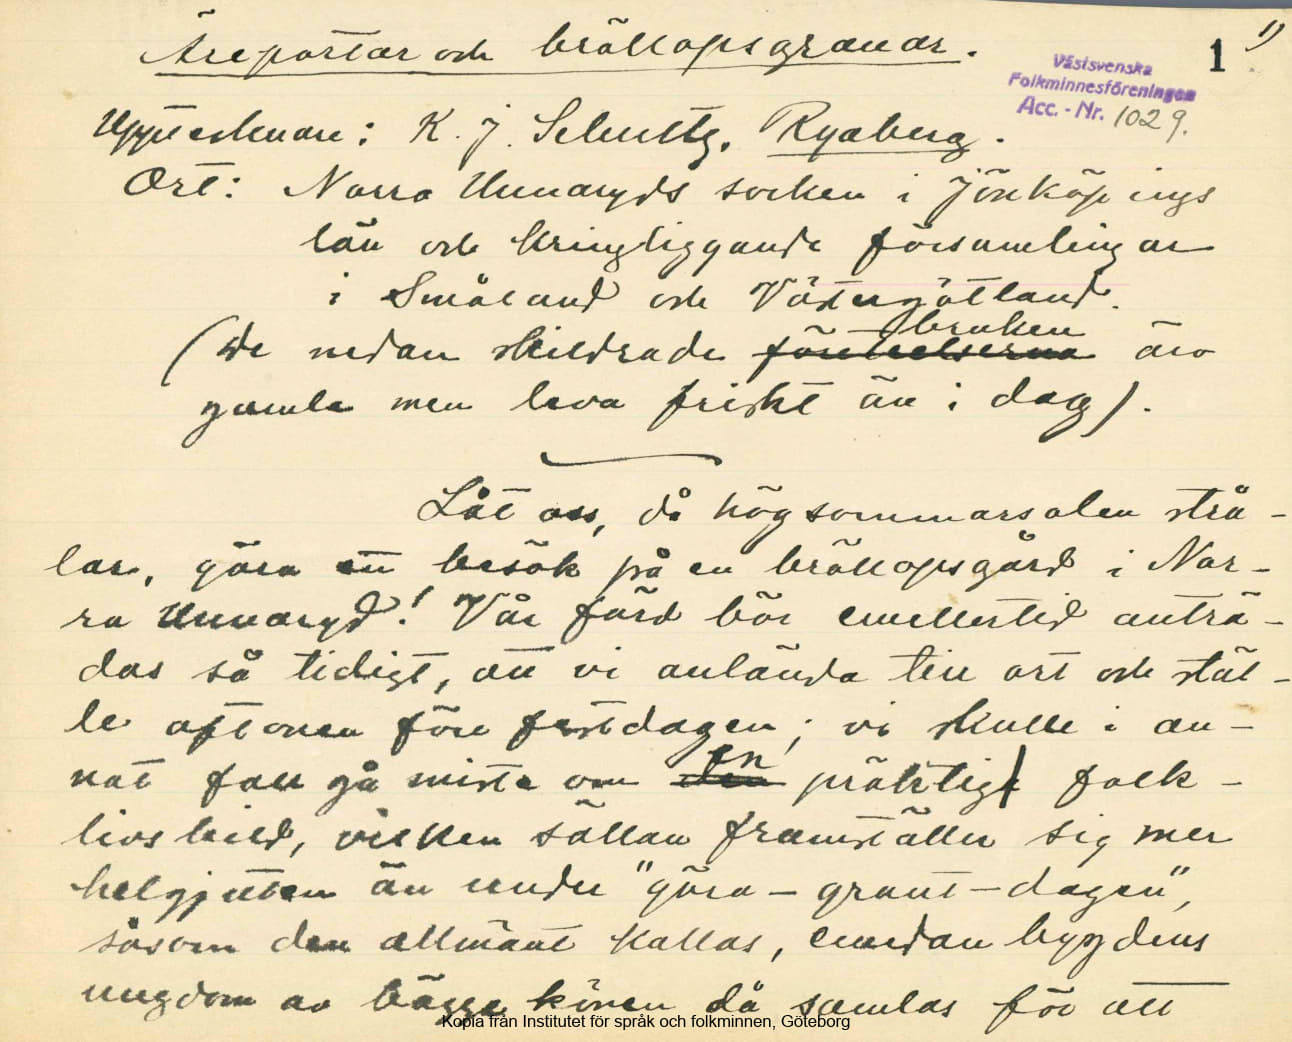 Äreportar och bröllopsgranar.
1
1)
Västsvenska
Folkminnesföreningen
Acc.-Nr. 1029.
Upptecknare: K. J. Schultz, Rydberg.
Ort: Norra Unnaryds socken i Jönköpings
län och kringliggande församlingar
i Småland och Västergötland.
bruken
(De nedan skildrade äro
gamla men leva friskt än i dag).
Låt oss, då högsommarsolen strå-
lar, göra ett besök på en bröllopsgård i Nor-
ra Unnaryd! Vår färd bör emellertid anträ-
das så tidigt, att vi anlända till ort och stäl-
le aftonen före festdagen; vi skulle i an-
en
nat fall gå miste om den präktig folk-
livsbild, vilken sällan framställer sig mer
helgjuten än under "göra-grant-dagen",
såsom den allmänt kallas, emedan bygdens
ungdom av bägge könen då samlas för att
Kopia från Institutet för språk och folkminnen, Göteborg